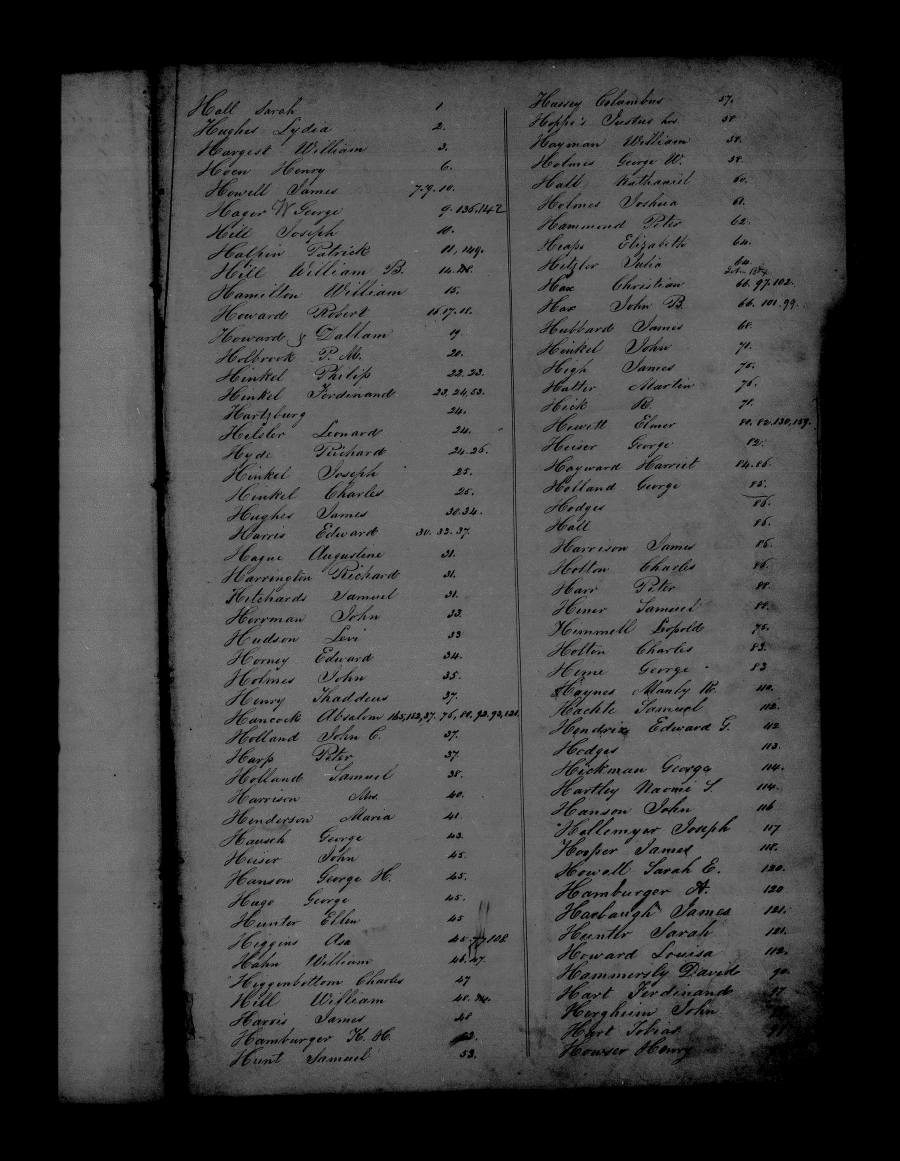 Hall Sarah 1
Hughes Lydia 2.
Hargest William 3.
Hoen Henry 6.
Howell James 7.9.10.
Hager W George 9.136.142
Hill Joseph 10.
Halpin Patrick 11, 149.
Hill William B. 14.
Hamilton William 15.
Howard Robert 16 17.18.
Howard & Dallam 19
Holbrook P. M. 20.
Hinkel Philip 22.23.
Hinkel Ferdinand 23,24,53.
Hartzburg 24.
Helsler Leonard 24.
Hyde Richard 24.26.
Hinkel Joseph 25.
Hinkel Charles 25.
Hughes James 30.34.
Harris Edward 30.33.37.
Hague Augustine 31.
Harrington Richard 31.
Hitchards Samuel 31.
Herrman John 33.
Hudson Levi 33
Horney Edward 34.
Holmes John 35.
Henry Thaddeus 37.
Hancock Absalom
Holland John C. 37.
Harp Peter 37.
Holland Samuel 38.
Harrison Mrs. 40.
Henderson Maria 41.
Hausch George 43.
Heiser John 45.
Hanson George H. 45.
Hugo George 45.
Hunter Ellen 45
Higgins Asa 45. 108
Hahn William 46.47.
Higgenbottom Charles 47
Hill William 48.
Harris James 48
Hamburger K. H.
Hunt Samuel 53.
Hussey Columbus 57.
Hoppe's Justus hrs. 58
Hayman William 58.
Holmes George W. 58.
Hall Nathaniel 60.
Holmes Joshua 61.
Hammond Peter 62.
Heaps Elizabeth 64.
Hitzler Julia 64.
Hax Christian 66.97.102.
Hax John B. 66.101.99.
Hubbard James 68.
Hinkel John 71.
High James 75.
Hatter Martin 76.
Hick R. 71.
Hewitt Elmer 80.82.130,159.
Heiser George 82.
Hayward Harriet 84.86.
Holland George 85.
Hodges 86.
Hall 86.
Harrison James 86.
Holton Charles 86.
Harr Peter 88
Hener Samuel 88.
Himmell Leopold 75.
Holton Charles 83.
Heine George 83
Haynes Manly R. 110.
Hachte Samuel 112.
Hendrix Edward G. 112
Hodges 113.
Hickman George 114.
Hartley Naomi S. 114.
Hanson John 116
Hollemyer Joseph 117
Hooper James 118.
Howell Sarah E. 120.
Hamburger A. 120
Harbaugh James 121.
Hunter Sarah 121.
Howard Louisa 112.
Hammersly David 90.
Hart Ferdinand 97
Hergheim John
Hart Tobias 91
Howser Henry